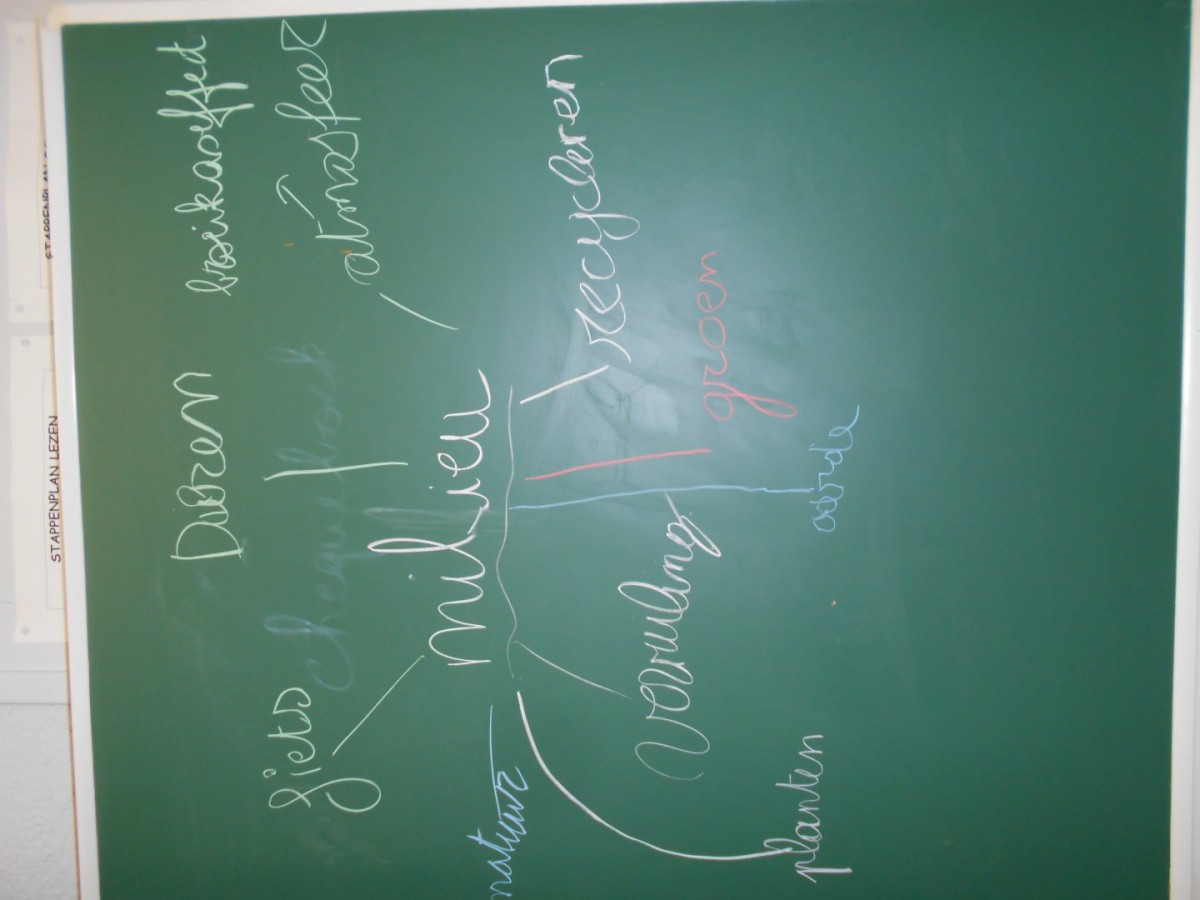 Dieren broeikaseffect
fiets
atmosfeer
milieu
natuur
recycleren
vervuiling
groen
aarde
planten
STAPPENPLAN LEZEN